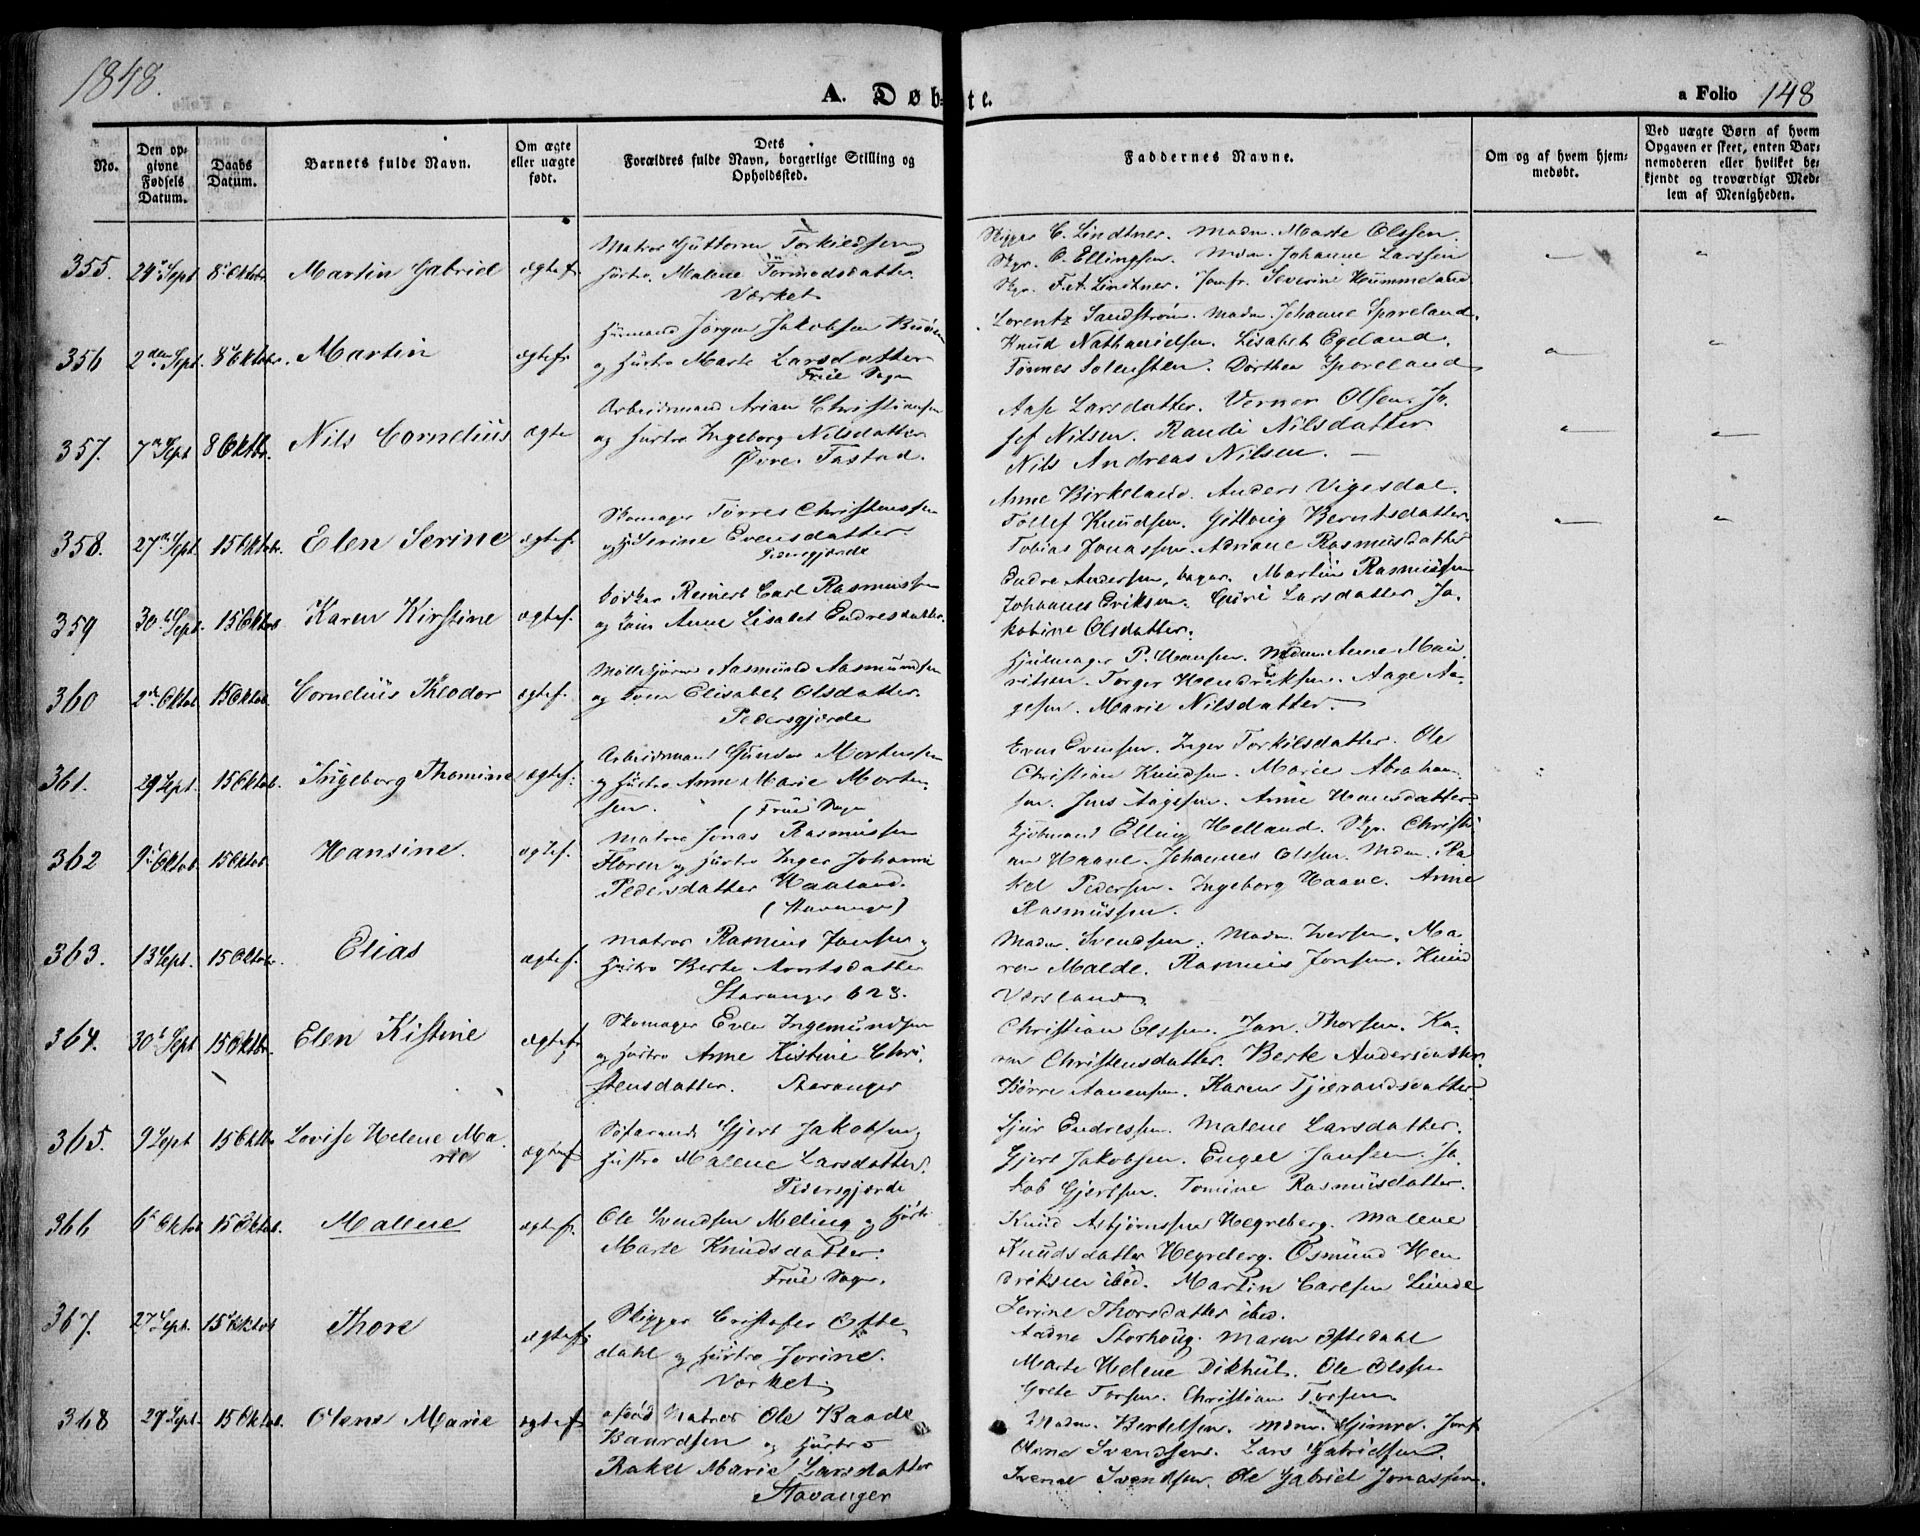 1848.
A. Døb-
te.
a Folio 148
No.
Den op-
givne
Fødsels
Datum.
Daabs
Datum.
Barnets fulde Navn.
Om ægte
eller uægte
født.
Dets
Forældres fulde Navn, borgerlige Stilling og
Opholdssted.
Faddernes Navne.
Om og af hvem hjem-
medøbt.
Ved uægte Børn af hvem
Opgaven er skeet, enten Bar-
nemoderen eller hvilket be-
kjendt og troværdigt Med-
lem af Menigheden.
355. 24 Sept 8 Oktobr. Martin Gabriel ægtef.
Matros Guttorm Torkildsen
Hustro Malene Tormodsdatter
Værket
Skipper C. Lindtner. Madm. Marte Olssen.
Skpr. O. Ellingsen. Mdm. Johanne Larssen
Skpr. F. A. Lindtner. Jomfr. Severine Hummeland
356 2den Sept. 8 Oktobr. Martin ægtef.
Huusmand Jørgen Jakobsen
og Hustro Marte Larsdatter
Frue Sogn
Lorentz Sandstrøm. Madm. Johanne Sporeland.
Knud Nathanielsen. Lisabet Egeland.
Tønnes Solensten. Dorthea Sporeland
357. 7 Sept 8 Oktbr. Nils Cornelius ægte
Arbeidsmand Arian Christiansen
og Hustro Ingeborg Nilsdatter
Øvre Tastad.
Aase Larsdatter. Verner Olsen. Jo
sef Nilsen. Randi Nilsdatter
Nils Andreas Nilsen.
358. 27 Sept. 15 Oktobr. Elen Serine ægtef.
Skomager Torres Christensen
og H. Serine Evensdatter.
Pedersgjerde
Anne Birkeland. Anders Vigesdal.
Tollef Knudsen. Gitlaug Berntsdatter
Tobias Jonassen. Adriane Rasmusdatter
359 30 Sept. 15 Oktob. Karen Kirstine ægtef.
Bødker Reinert Carl Rasmussen
og Kone Anne Lisabet Endresdatter.
Endre Andersen, bager. Martin Rasmussen
Johannes Eriksen. Guri Larsdatter. Ja
kobine Olsdatter.
360 2 Oktob 15 Oktob. Cornelius Theodor ægtef.
Aasmund Aasmundsen
og Kone Elisabet Olsdatter.
Pedersgjerde
Hjulmager P. Hansen. Mdm. Anne Mau
ritsen. Torger Hendriksen. Aage Aa-
gesen. Marie Nilsdatter.
361. 29 Sept. 15 Oktob. Ingeborg Thomine ægtef.
Arbeidsmand Gunder Mortensen
og Hustro Anne Marie Morten-
sen. (Frue Sogn
Even Evensen. Inger Torkilsdatter. Ole
Christian Knudsen. Marie Abraham
sen. Jens Aagesen. Anne Hansdatter
362 9 Oktob 15 Oktob. Hansine. ægtef.
Matros Jonas Rasmussen
Floren og Hustro Inger Johanne
Pedersdatter Haaland.
(Stavanger)
Elling Helland. Skpr. Christi
an Haave. Johannes Olssen. Mdm. Ra
kel Pedersen. Ingeborg Haave. Anne
Rasmussen.
363. 13 Sept. 15 Oktobr. Elias ægtef.
Matros Rasmus Jansen og
Hustro Berte Arntsdatter
Stavanger 623.
Madm. Svendsen. Madm. Iversen. Ma
ren Malde. Rasmus Jonsen. Knud
Versland.
364. 30 Sept 15 Oktbr. Elen Kistine ægtef.
Skomager Even Ingemundsen
og Hustro Anne Kistine Chri
stensdatter. Stavanger
Christian Olssen. Jan Thorsen. Ka-
ren Christensdatter. Berte
Børre Aanensen. Karen Tjerandsdatter
365. 9 Sept 15 Oktbr Lovise Helene Ma-
rie ægtef
Søfarende Gjert Jakobsen
Hustro Malene Larsdatter.
Pedersgjerde
Sjur Endressen. Malene Larsdatter.
Gjert Jakobsen. Engel Jansen. Ja
kob Gjertsen. Tomine Rasmusdatter.
366 6 Oktob 15 Oktob. Malene ægtef.
Ole Svendsen Melling og Hustr
Marte Knudsdatter.
Frue Sogn.
Knud Asbjørnssen Hegreberg. Malene
Knudsdatter Hegreberg. Osmund Hen
driksen ibid. Martin Carlsen Lunde
Serine Thorsdatter ibid.
367. 27 Sept. 15 Oktob Thore ægtef.
Skipper Cristofer Ofte-
dahl og Hustro Jorine.
Værket
Aadne Storhoug. Maren Oftedahl
Marte Helene Dikhut. Ole Olssen
Grete Torsen. Christian Torsen
368 27 Sept. 15 Oktob. Olene Marie ægtef
Matros Ole Baade
Baardsen og Hustro
Rakel Marie Larsdatter
Stavanger
Madm. Bertelsen. Mdm. Gjemre. Jomf
Olene Svendsen. Lars Gabrielsen.
Svend Svendsen. Ole Gabriel Jonassen.